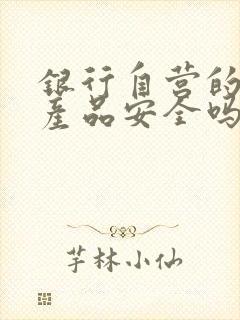 银行自营的
产品安全吗
芋林小仙